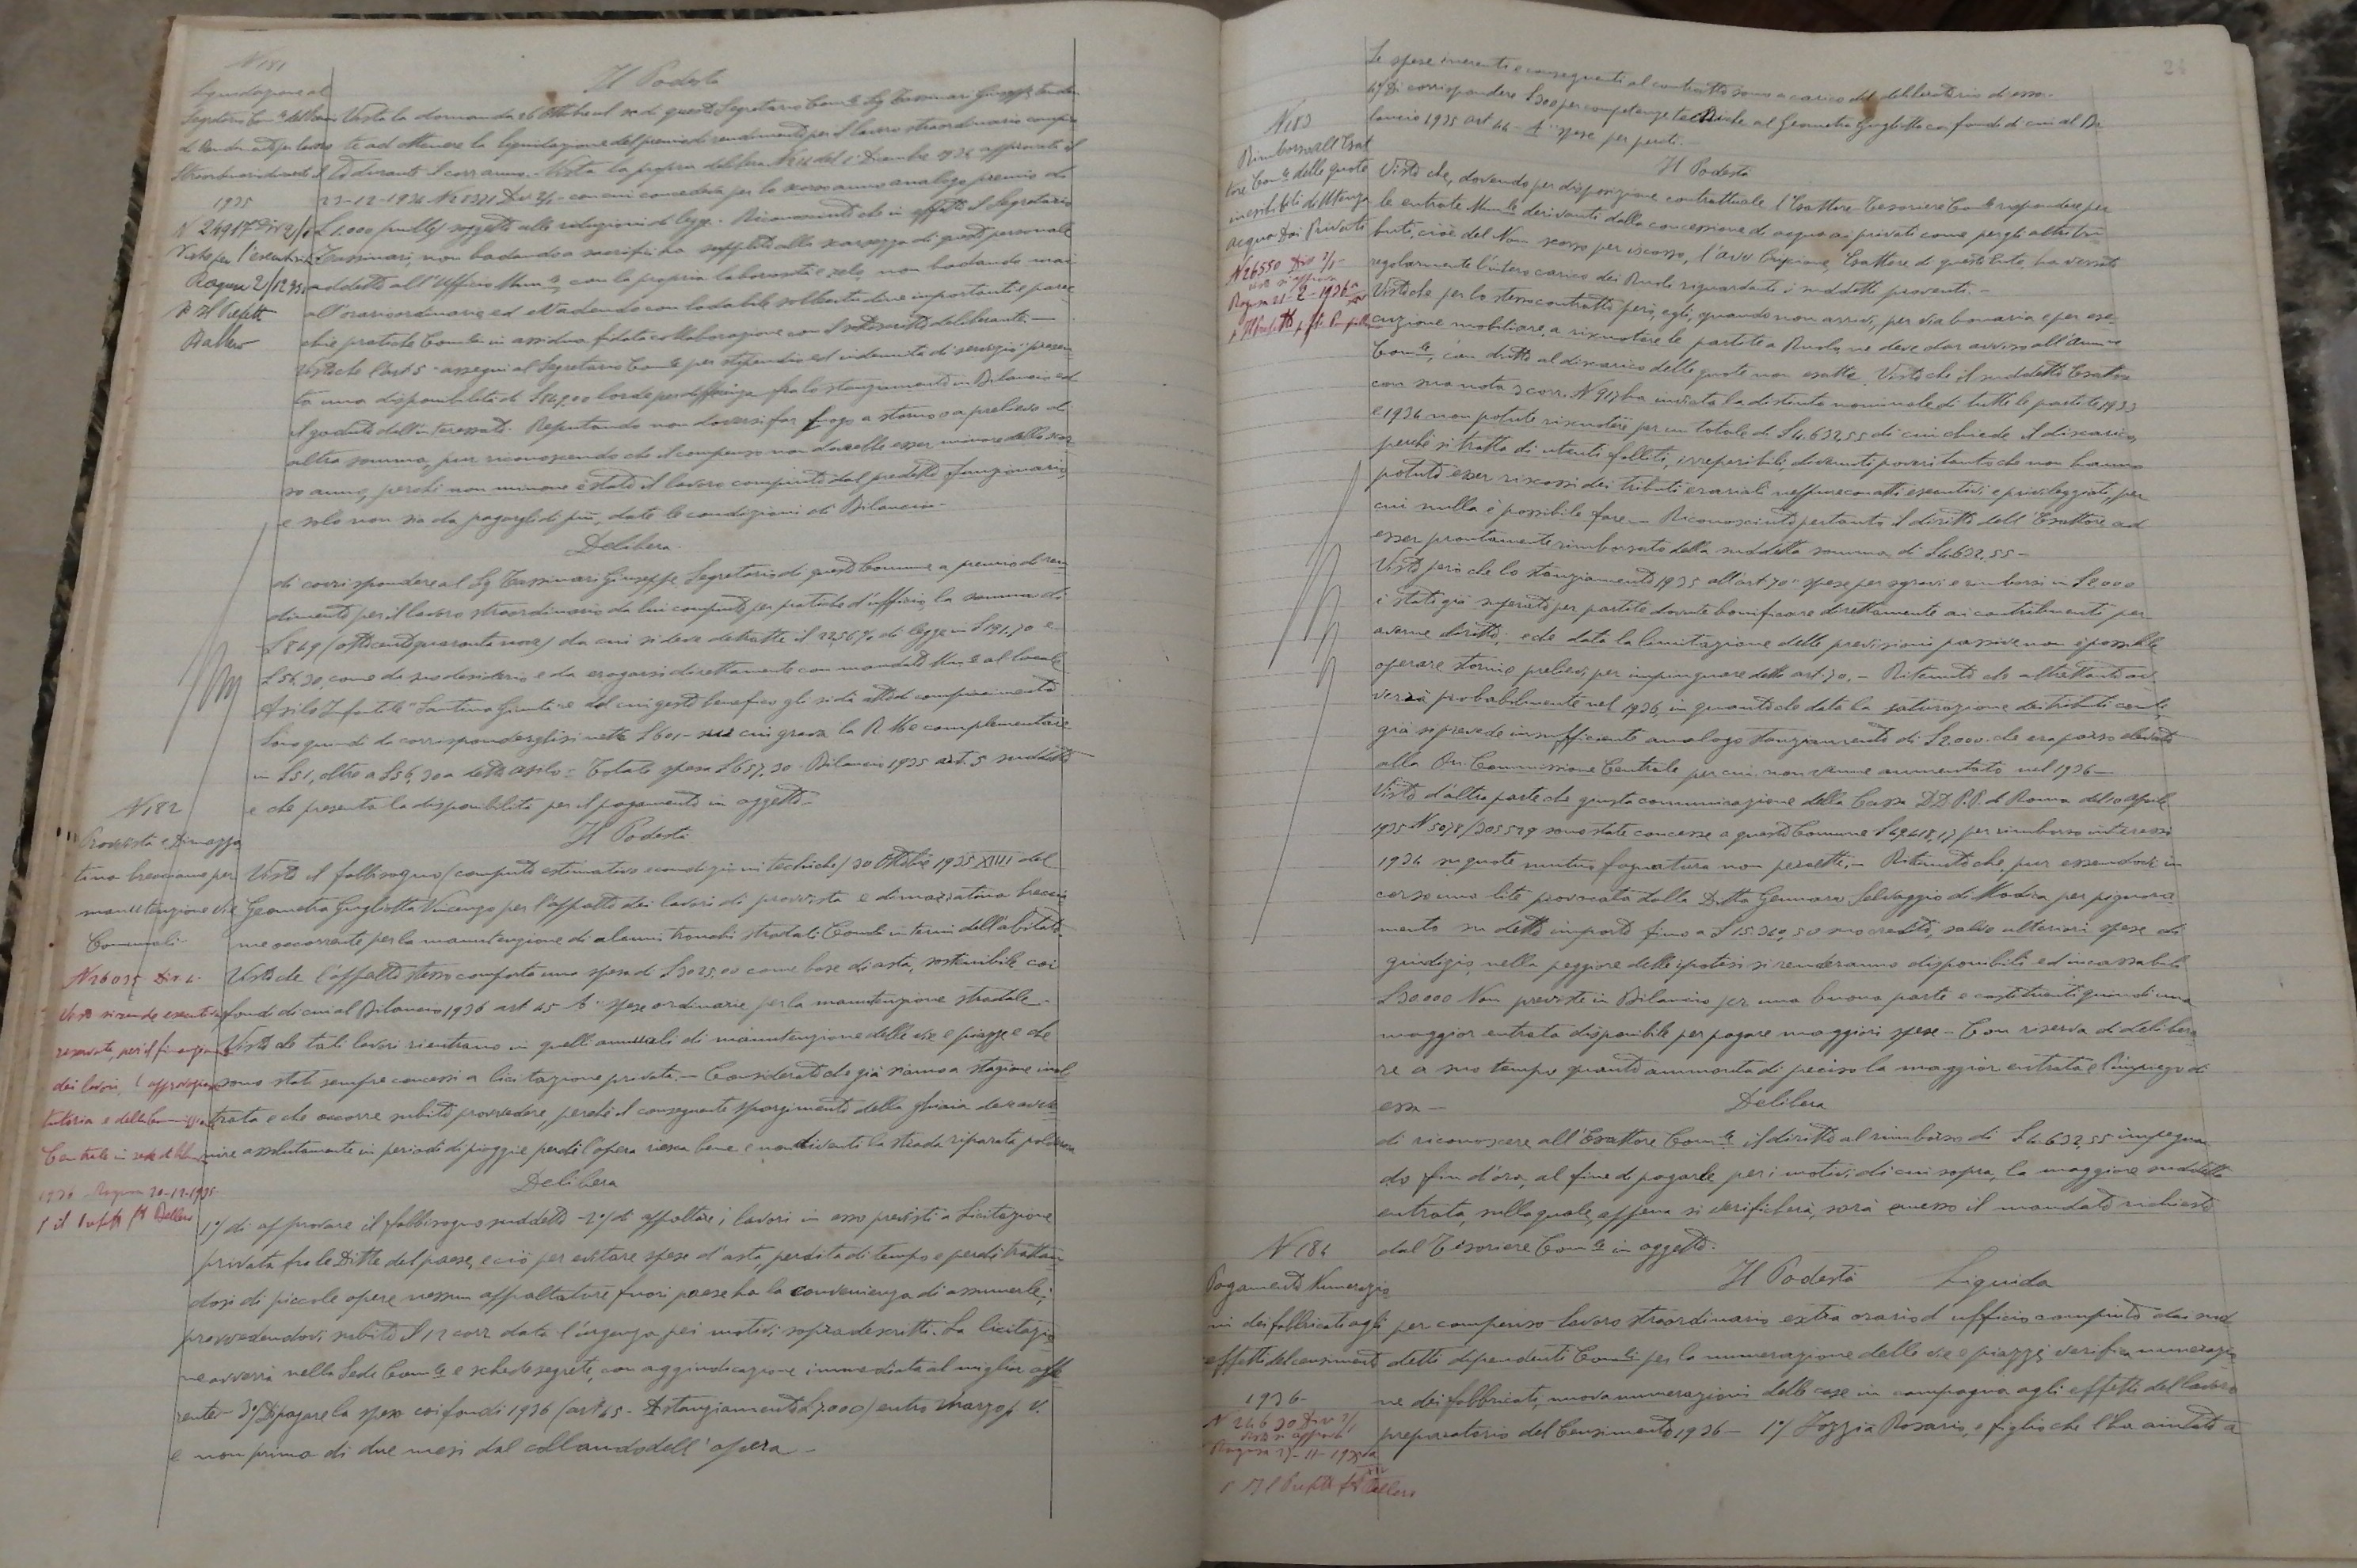 N 181
Liquidazione al
Segretario Com.le del premio
di rendimento per lavoro
Straordinario durante il
1935
N 24917 Div 2/1
Visto per l'esecutorietà
Ragusa 2/12 935
p Il Prefetto
Ballero
Il Podestà
Vista la domanda 26 Ottobre u.s. di questo Segretario Com.le Sig Tassinari Giuseppe tenden
te ad ottenere la liquidazione del premio di rendimento per il lavoro straordinario compiu
to durante il corr anno. - Vista la propria delibera del 1° Dicembre 1934 approvata il
23-12-1934 N 28321 Div 2/1 - con cui concedeva per lo scorso anno analogo premio di
L 1.000 (mille) soggetto alle riduzioni di legge. Riconosciuto che in effetti il Segretario
Tassinari, non badando a sacrifici ha supplito alla scarsezza di questo personale
addetto all'Ufficio Mun.le, con la propria laboriosità e zelo, non badando mai
all'orario ordinario, ed evadendo con lodabile sollecitudine importanti e parec
chie pratiche Com.li in assidua fidata collaborazione con il sottoscritto deliberante. -
Visto che l'art 5 - assegni al Segretario Com.le per stipendio ed indennità di servizio "presen
ta una disponibilità di L 849,00 lorde per differenza fra lo stanziamento in Bilancio ed
il goduto dall'interessato. Reputando non doversi far luogo a storno o a prelievo di
altra somma, pur riconoscendo che il compenso non dovrebbe esser minore dello scor
so anno, perchè non minore è stato il lavoro compiuto dal predetto funzionario,
e solo non sia da pagargli di più, date le condizioni di Bilancio -
Delibera
di corrispondere al Sig Tassinari Giuseppe Segretario di questo Comune a premio di ren
dimento per il lavoro straordinario da lui compiuto per pratiche d'ufficio la somma di
L 849 (ottocentoquarantanove) da cui si deve detratte il 22,56% di legge in L 191,70 e
L 56,30, come da suo desiderio e da erogarsi direttamente con mandato Mun.le al locale
Asilo Infantile "Santina Giunta" e del cui gesto benefico gli si dà atto di compiacimento
Sono quindi da corrispondergli si nette L 601 - su cui grava la R M e complementare
in L 51, oltre a L 56,30 a detto asilo = Totale spesa L 657,30 - Bilancio 1935 art. 5 suddetto
e che presenta la disponibilità per il pagamento in oggetto -
N 182
Provvista e Dimazza
tina brecciame per
manutenzione vie
Comunali -
N 26035 Div 4.
Visto si rende esecutiva
riservato, per il finanziamento
dei lavori, l'approvazione
tutoria e della Commissione
Centrale in sede di bilancio
1936 Ragusa 30-12-1935
p il Prefetto f° Ballero
Il Podestà
Visto il fabbisogno (computo estimativo e condizioni tecniche) 30 Ottobre 1935 XIIII del
Geometra Gugliotta Vincenzo per l'appalto dei lavori di provvista e dimazzatina breccia
me occorrente per la manutenzione di alcuni tronchi stradali Com.li interni dell'abitato.
Visto che l'appalto stesso comporta una spesa di L 3025,00 come base di asta, sostenibile coi
fondi di cui al Bilancio 1936 art 45 A "spese ordinarie per la manutenzione stradale -
Visto che tali lavori rientrano in quelli annuali di manutenzione delle vie e piazze e che
sono stati sempre concessi a licitazione privata. - Considerato che già siamo a stagione inol
trata e che occorre subito provvedere, perchè il conseguente spargimento della ghiaia deve avve
nire assolutamente in periodi di pioggie perchè l'opera riesca bene e non diventi la strada riparata polverosa
Delibera
1°/ di approvare il fabbisogno suddetto - 2°/ di appaltare i lavori in esso previsti a Licitazione
privata fra le Ditte del paese, e ciò per evitare spese d'asta, perdita di tempo e perchè trattan
dosi di piccole opere nessun appaltatore fuori paese ha la convenienza di assumerle;
provvedendovi subito il 12 corr data l'urgenza pei motivi sopradescritti. La licitazio
ne avverrà nella Sede Com.le a schede segrete, con aggiudicazione immediata al miglior offe
rente - 3°/ Di pagare la spesa coi fondi 1936 (art 45 - A stanziamento L 7.000) entro Marzo p. v.
e non prima di due mesi dal collaudo dell'opera -
24
Le spese inerenti e conseguenti al contratto sono a carico del deliberatario di esso.
4°/ Di corrispondere L 300 per competenze tecniche al Geometra Gugliotta coi fondi di cui al Bi
lancio 1935 art 44 - A "spese per periti. -
N 183
Rimborso all'Esat
tore Com.le delle quote
inesigibili di Utenza
acqua Dai Privati
N 26550 Div 2/1 -
Visto si approva
Ragusa 21-2-1936
p Il Prefetto
Il Podestà
Visto che, dovendo per disposizione contrattuale l'Esattore Tesoriere Com.le rispondere per
le entrate Mun.le derivanti dalla concessione di acqua ai privati come per gli altri tri
buti, cioè del Non scosso per iscosso, l'avv Cupione, Esattore di questo Ente, ha versato
regolarmente l'intero carico dei Ruoli riguardanti i suddetti proventi. -
Visto che per lo stesso contratto però, egli, quando non arrivi, per via bonaria e per ese
cuzione mobiliare, a riscuotere le partite a Ruolo, ne deve dar avviso all'Amm.ne
Com.le, con diritto al discarico delle quote non esatte. Visto che il suddetto Esattore
con sua nota 2 corr. N 917 ha inviato la distinta nominale di tutte le partite 1933
e 1934 non potute riscuotere per un totale di L 4.632,55 di cui chiede il discarico,
perchè si tratta di utenti falliti, irreperibili, divenuti poveri tanto che non hanno
potuto esser riscossi dei tributi erariali neppure con atti esecutivi e privileggiati, per
cui nulla è possibile fare. - Riconosciuto pertanto il diritto dell'Esattore ad
esser prontamente rimborsato della suddetta somma di L 4.632,55 -
Visto però che lo stanziamento 1935 all'art. 70 "spese per sgravi e rimborsi in L 2.000
è stato già superato per partite dovute bonificare direttamente ai contribuenti per
averne diritto; e che data la limitazione delle previsioni passive non è possibile
operare storni e prelievi, per impinguare detto art. 70. - Ritenuto che altrettanto av
verrà probabilmente nel 1936, in quanto che data la saturazione dei tributi com.li,
già si prevede insufficiente analogo stanziamento di L 2.000 che era parso elevato
alla On. Commissione Centrale per cui non venne aumentato nel 1936 -
Visto d'altra parte che giusta comunicazione della Cassa DD. P.P. di Roma del 10 Aprile
1935 N 5078/205529 sono state concesse a questo Comune L 49418,17 per rimborso interessi
1934 su quote mutuo fognatura non percette. - Ritenuto che, pur essendovi in
corso una lite provocata dalla Ditta Gennaro Selvaggio di Modica per pignora
mento su detto importo fino a L 15.340,50 suo credito, salvo ulteriori spese di
giudizio, nella peggiore delle ipotesi si renderanno disponibili ed incassabili
L 30.000 Non previste in Bilancio per una buona parte e costituenti quindi una
maggior entrata disponibile per pagare maggiori spese - Con riserva di delibera
re a suo tempo quanto ammonta di preciso la maggior entrata e l'impiego di
essa -
Delibera
di riconoscere all'Esattore Com.le il diritto al rimborso di L 4.632,55 impegnan
do fin d'ora, al fine di pagarle per i motivi di cui sopra, la maggiore suddetta
entrata, sulla quale, appena si verificherà, sarà emesso il mandato richiesto
dal Tesoriere Com.le in oggetto.
N 184
Pagamento Numerazio
ni dei fabbricati agli
effetti del censimento
1936 -
N 24630 Div 2/1
Visto si approva
Ragusa 27-11-1935
p Il Prefetto f° Ballero
Il Podestà Liquida
per compenso lavoro straordinario extra orario d'ufficio compiuto dai sud
detti dipendenti Com.li per la numerazione delle vie e piazze, verifica numerazio
ne dei fabbricati, nuova numerazione delle case in campagna agli effetti del lavoro
preparatorio del Censimento 1936 - 1°/ Iozzia Rosario, e figlio che l'ha aiutato a